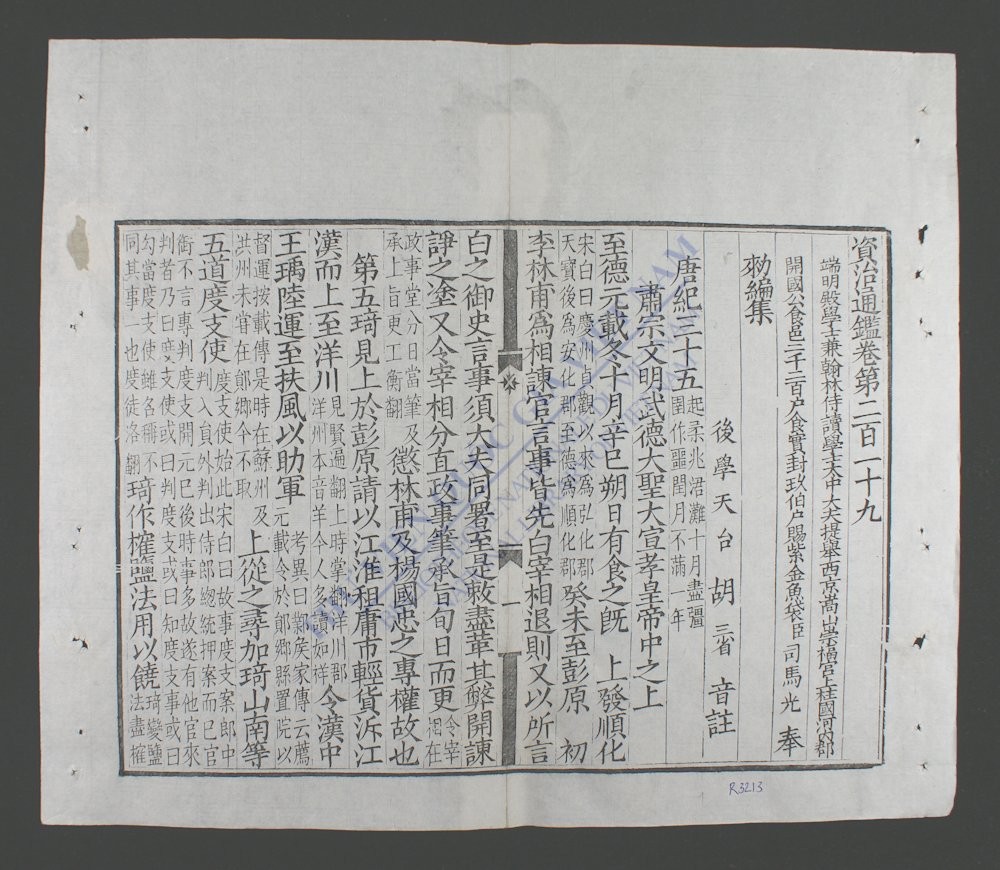 資治通鑑卷第二百一十九
端明殿學士兼翰林侍讀學士太中大夫提舉西京嵩山崇福宮上柱國河內郡
開國公食邑二千二百戶食實封玖伯戶賜紫金魚袋臣司馬光奉
勑編集
後學天台胡三省音註
唐紀三十五起柔兆涒灘十月盡彊
圉作噩閏月不滿一年
肅宗文明武德大聖大宣孝皇帝中之上
至德元載冬十月辛巳朔日有食之既 上發順化
宋白曰慶州貞觀以來為弘化郡
天寶後為安化郡至德為順化郡癸未至彭原 初
李林甫為相諫官言事皆先白宰相退則又以所言
白之御史言事須大夫同署至是敕盡革其弊開諫
諍之塗又令宰相分直政事筆承旨旬日而更令宰相在
政事堂分日當筆及
承上旨更工衡翻懲林甫及楊國忠之專權故也
第五琦見上於彭原請以江淮租庸市輕貨泝江
漢而上至洋川見賢遍翻上時掌翻洋川郡
洋州本音羊今人多讀如祥令漢中
王瑀陸運至扶風以助軍考異曰鄴侯家傳云薦
元載令於鄖鄉縣置院以
督運按載傳是時在蘇州及
洪州未甞在鄖鄉今不取上從之尋加琦山南等
五道度支使度支使始此宋白曰故事度支案郎中
判入員外判出侍郎總統押案而已官
銜不言專判度支開元已後時事多故遂有他官來
判者乃曰度支使或曰判度支或曰知度支事或曰
勾當度支使雖名稱不
同其事一也度徒洛翻琦作榷鹽法用以饒琦變鹽
法盡榷
一
R.3213